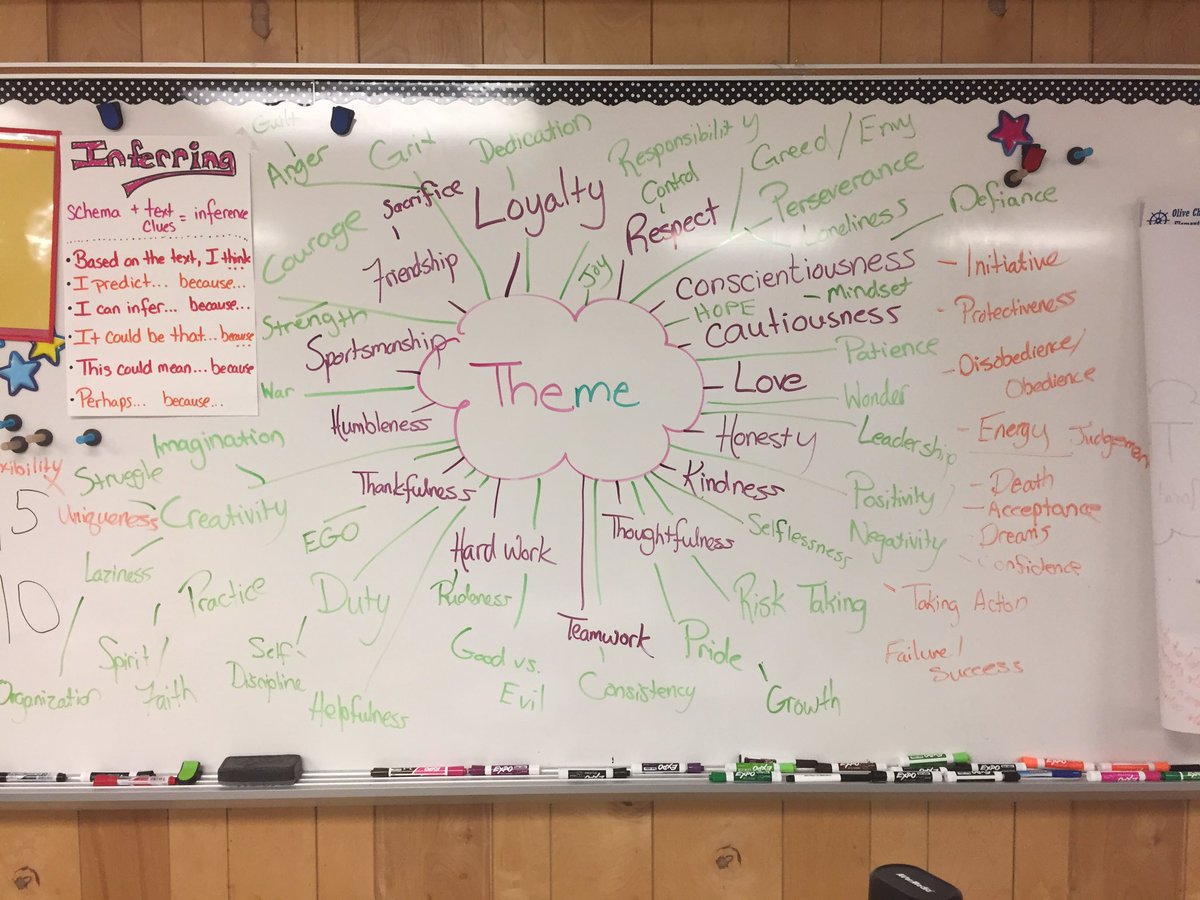 Inferring
Schema + text = inference
clues
• Based on the text, I think
• I predict... because...
• I can infer... because...
• It could be that... because
• This could mean... because
• Perhaps... because...
Theme
Guilt
Anger
Grit
Dedication
Responsibility
Control
Greed / Envy
Sacrifice
Loyalty
Respect
Perseverance
Loneliness
Defiance
Courage
Friendship
Joy
Conscientiousness
- Mindset
HOPE
Cautiousness
Strength
Sportsmanship
Patience
War
Love
Wonder
Humbleness
Honesty
Leadership
Imagination
Struggle
Thankfulness
Kindness
Positivity
Uniqueness
Creativity
EGO
Hard Work
Thoughtfulness
Selflessness
Negativity
Laziness
Practice
Duty
Rudeness
Risk Taking
Teamwork
Spirit/
Faith
Self
Discipline
Good vs.
Evil
Pride
Organization
Helpfulness
Consistency
Growth
- Initiative
- Protectiveness
- Disobedience/
Obedience
- Energy
- Death
- Acceptance
- Dreams
- Taking Action
Failure/
Success
5
10
Olive
EXPO
EXPO
EXPO
EXPO
EXPO
EXPO